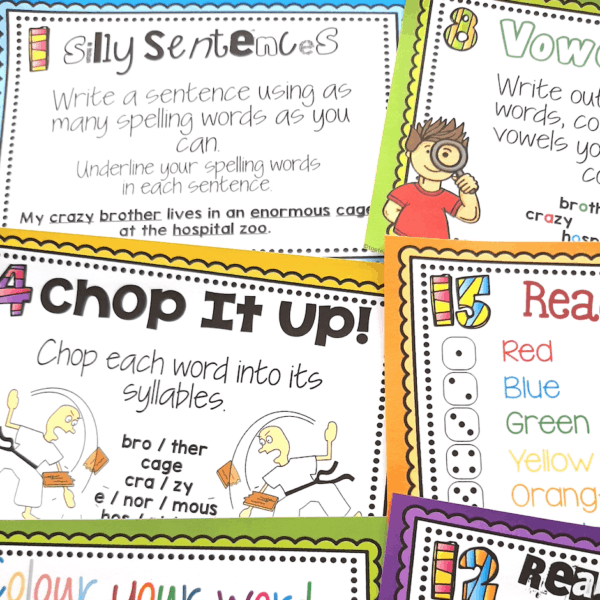 1 Silly Sentences
Write a sentence using as
many spelling words as you
can.
Underline your spelling words
in each sentence.
My crazy brother lives in an enormous cage
at the hospital zoo.
8
Write out
words, co
vowels yo
co
brot
crazy
hosp
4 Chop It Up!
Chop each word into its
syllables.
bro / ther
cage
cra / zy
e / nor / mous
15 Rea
Red
Blue
Green
Yellow
Orang
Colour your word
12 Rea